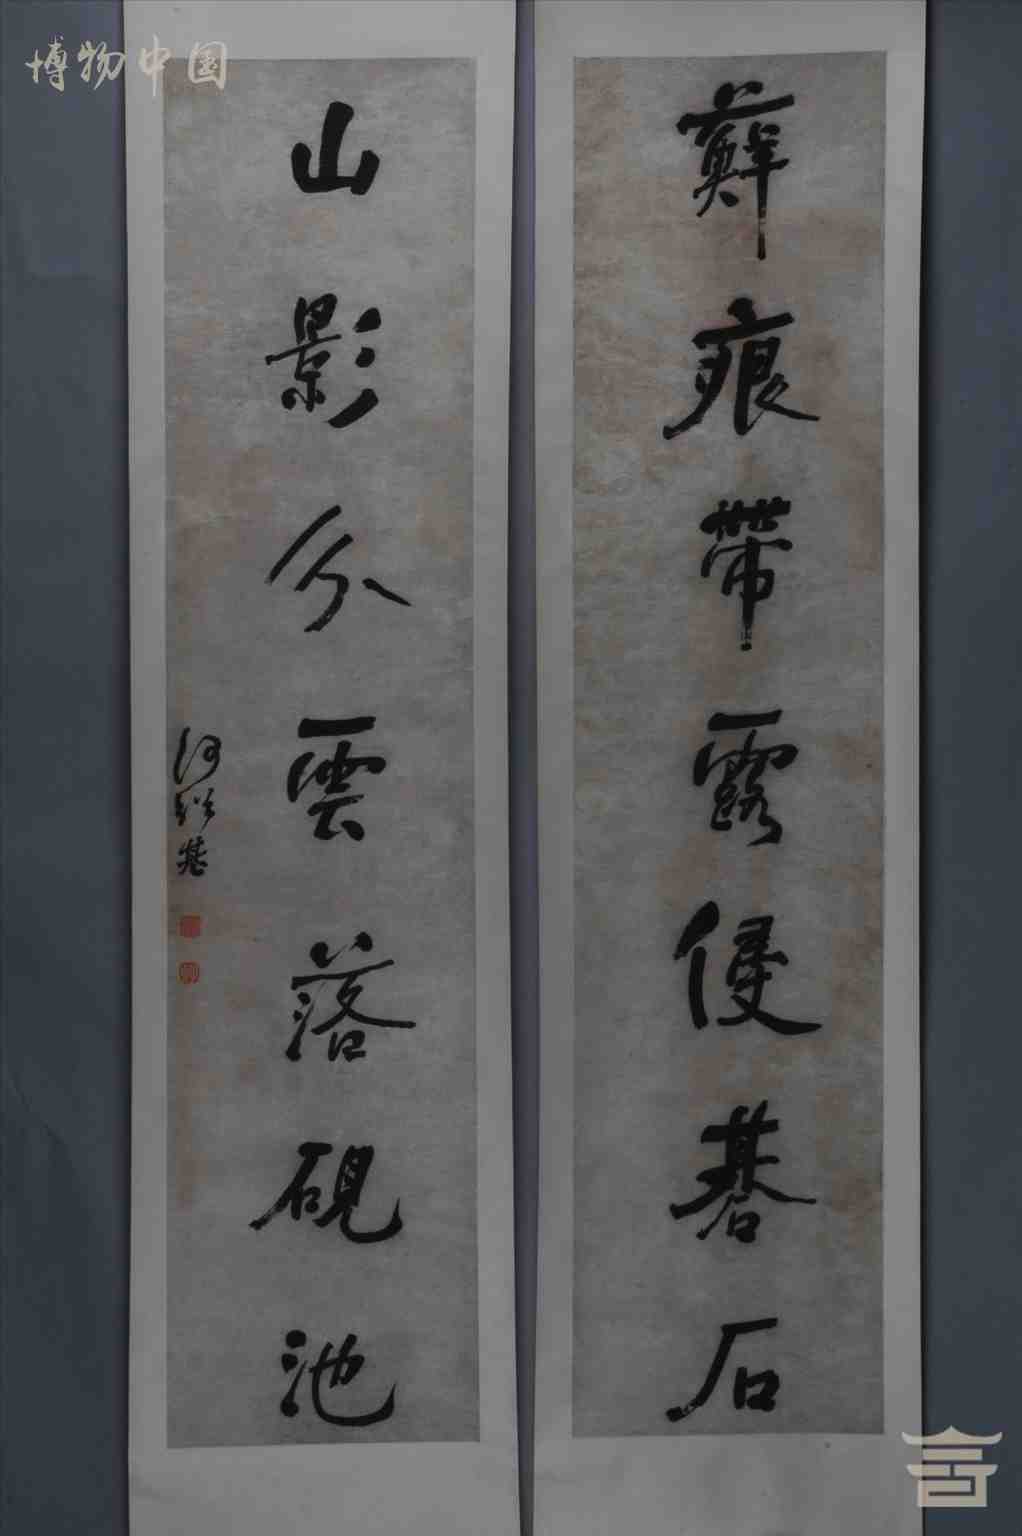 蘚痕帶露侵碁石
山影分雲落硯池
何紹基
博物中国